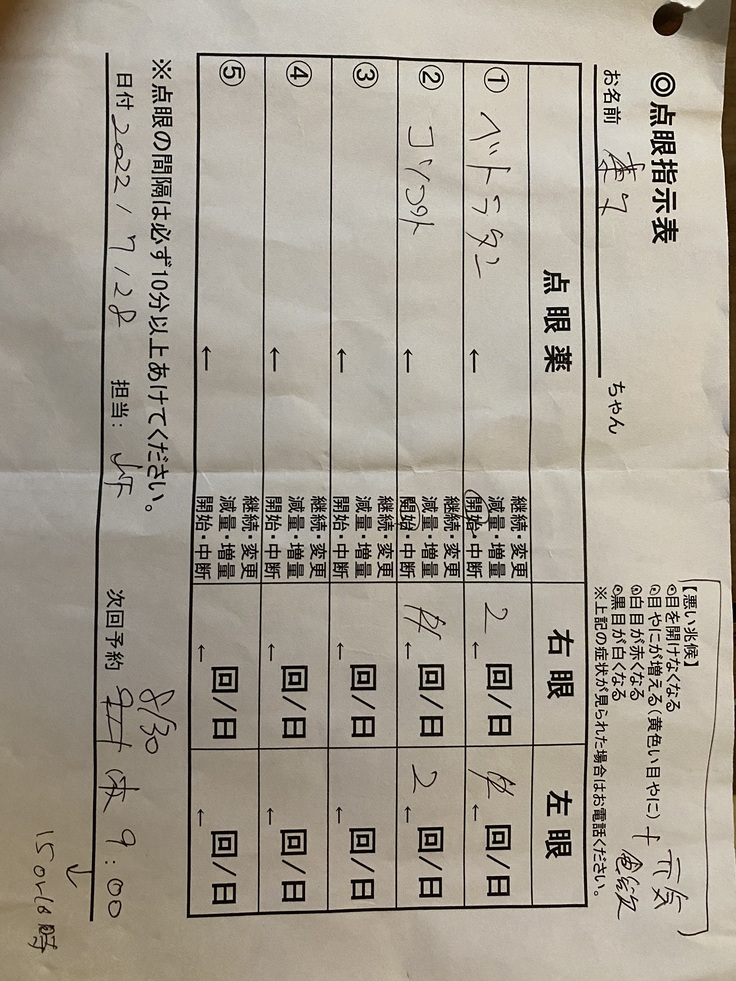 ◎点眼指示表
お名前 ちゃん
【悪い兆候】
◎目を開けなくなる
◎目やにが増える(黄色い目やに)
◎白目が赤くなる
◎黒目が白くなる
※上記の症状が見られた場合はお電話ください。
点眼薬 右眼 左眼
① ベトラタン ← 継続・変更 減量・増量 開始・中断 2 ← 回/日 ← 回/日
② コソプト ← 継続・変更 減量・増量 開始・中断 ← 回/日 2 ← 回/日
③ ← 継続・変更 減量・増量 開始・中断 ← 回/日 ← 回/日
④ ← 継続・変更 減量・増量 開始・中断 ← 回/日 ← 回/日
⑤ ← 継続・変更 減量・増量 開始・中断 ← 回/日 ← 回/日
※点眼の間隔は必ず10分以上あけてください。
日付 2022/7/28 担当: 次回予約 8/30 9:00
↓
15or16時